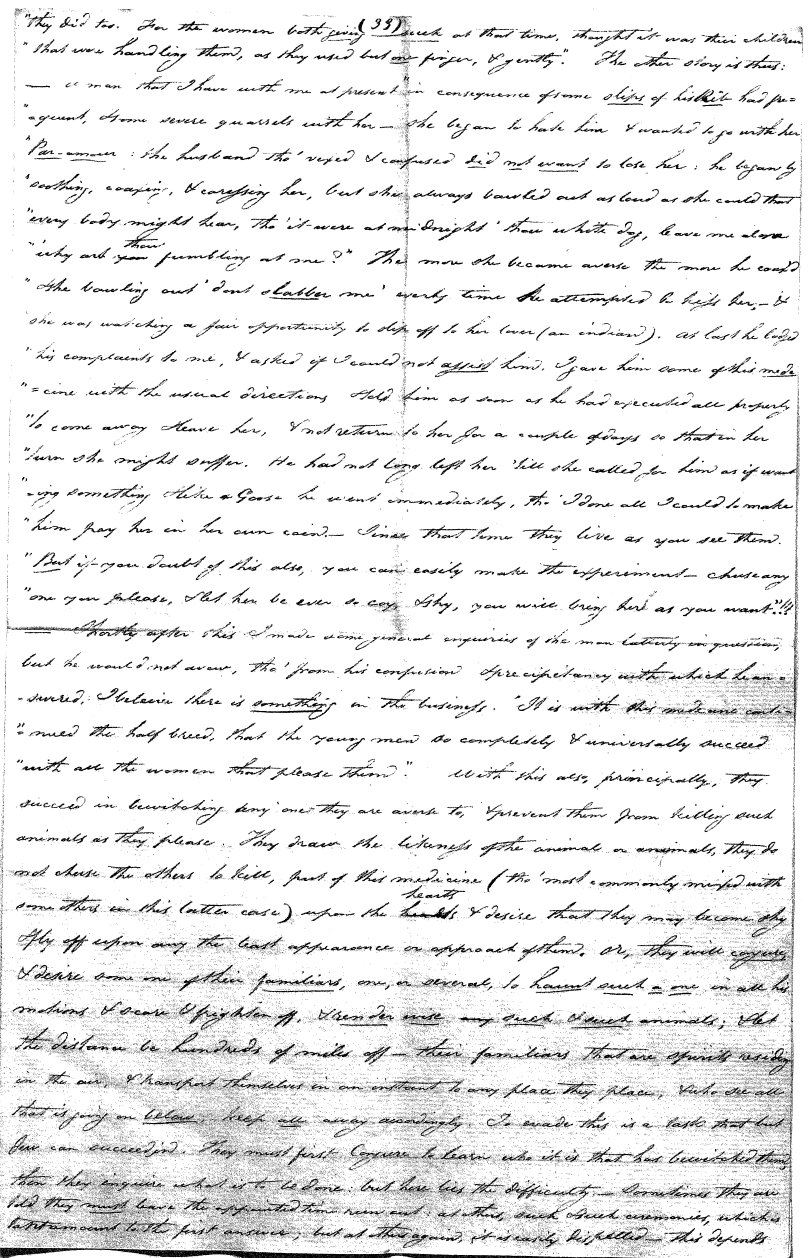 (39)
"they did too. For the women both giving suck at that time, thought it was their children
"that were handling them, as they used but one finger, & gently". The other story is thus:
— "a man that I have with me at present "in consequence of some slips of his Rib had fre=
"=quent, & some severe quarrels with her — she began to hate him & wanted to go with her
"Par-amour: the husband tho' vexed & confused did not want to lose her: he began by
"soothing, coaxing, & caressing her, but she always bawled out as loud as she could that
"every body might hear, tho' it were at midnight 'thou white dog, leave me alone
"'why art thou fumbling at me?" The more she became averse the more he coax'd
"& she bawling out 'dont slabber me' every time he attempted to kiss her, — &
she was watching a fair opportunity to slip off to her lover (an indian). At last he lodged
"his complaints to me, & asked if I could not assist him. I gave him some of this medi
"=cine with the usual directions & told him as soon as he had executed all properly
"to come away & leave her, & not return to her for a couple of days so that in her
"turn she might suffer. He had not long left her 'till she called for him as if want
"-ing something & like a Goose he went immediately, tho' I done all I could to make
"him pay her in her own coin. — Since that time they live as you see them.
"But if you doubt of this also, you can easily make the experiment — chuse any
"one you please, & let her be ever so coy & shy, you will bring her as you want"!!!
— Shortly after this I made some general enquiries of the man latterly in question,
but he would not avow, tho' from his confusion & precipitancy with which he an=
-swered, I believe there is something in the business. "It is with this medicine conti=
"=nued the half breed, that the young men so completely & universally succeed
"with all the women that please them". With this also, principally, they
succeed in bewitching any one they are averse to, & prevent them from killing such
animals as they please. They draw the likeness of the animal or animals, they do
not chuse the others to kill, put of this medicine (tho' most commonly mixed with
some others in this latter case) upon the hearts & desire that they may become shy
& fly off upon any the least appearance or approach of them. Or, they will conjure,
& desire some one of their familiars, one, or several, to haunt such a one in all his
motions & scare & frighten off, & render wise any such & such animals; & let
the distance be hundreds of miles off — their familiars that are spirits residing
in the air, & transport themselves in an instant to any place they please, & who see all
that is going on below, keep all away accordingly. To evade this is a task that but
few can succeed in. They must first Conjure to learn who it is that has bewitched them,
then they enquire what is to be done: but here lies the difficulty — Sometimes they are
told they must leave the appointed time run out: at others, such & such ceremonies, which is
tantamount to the first answer; but at others again, it is easily dispelled — this depends